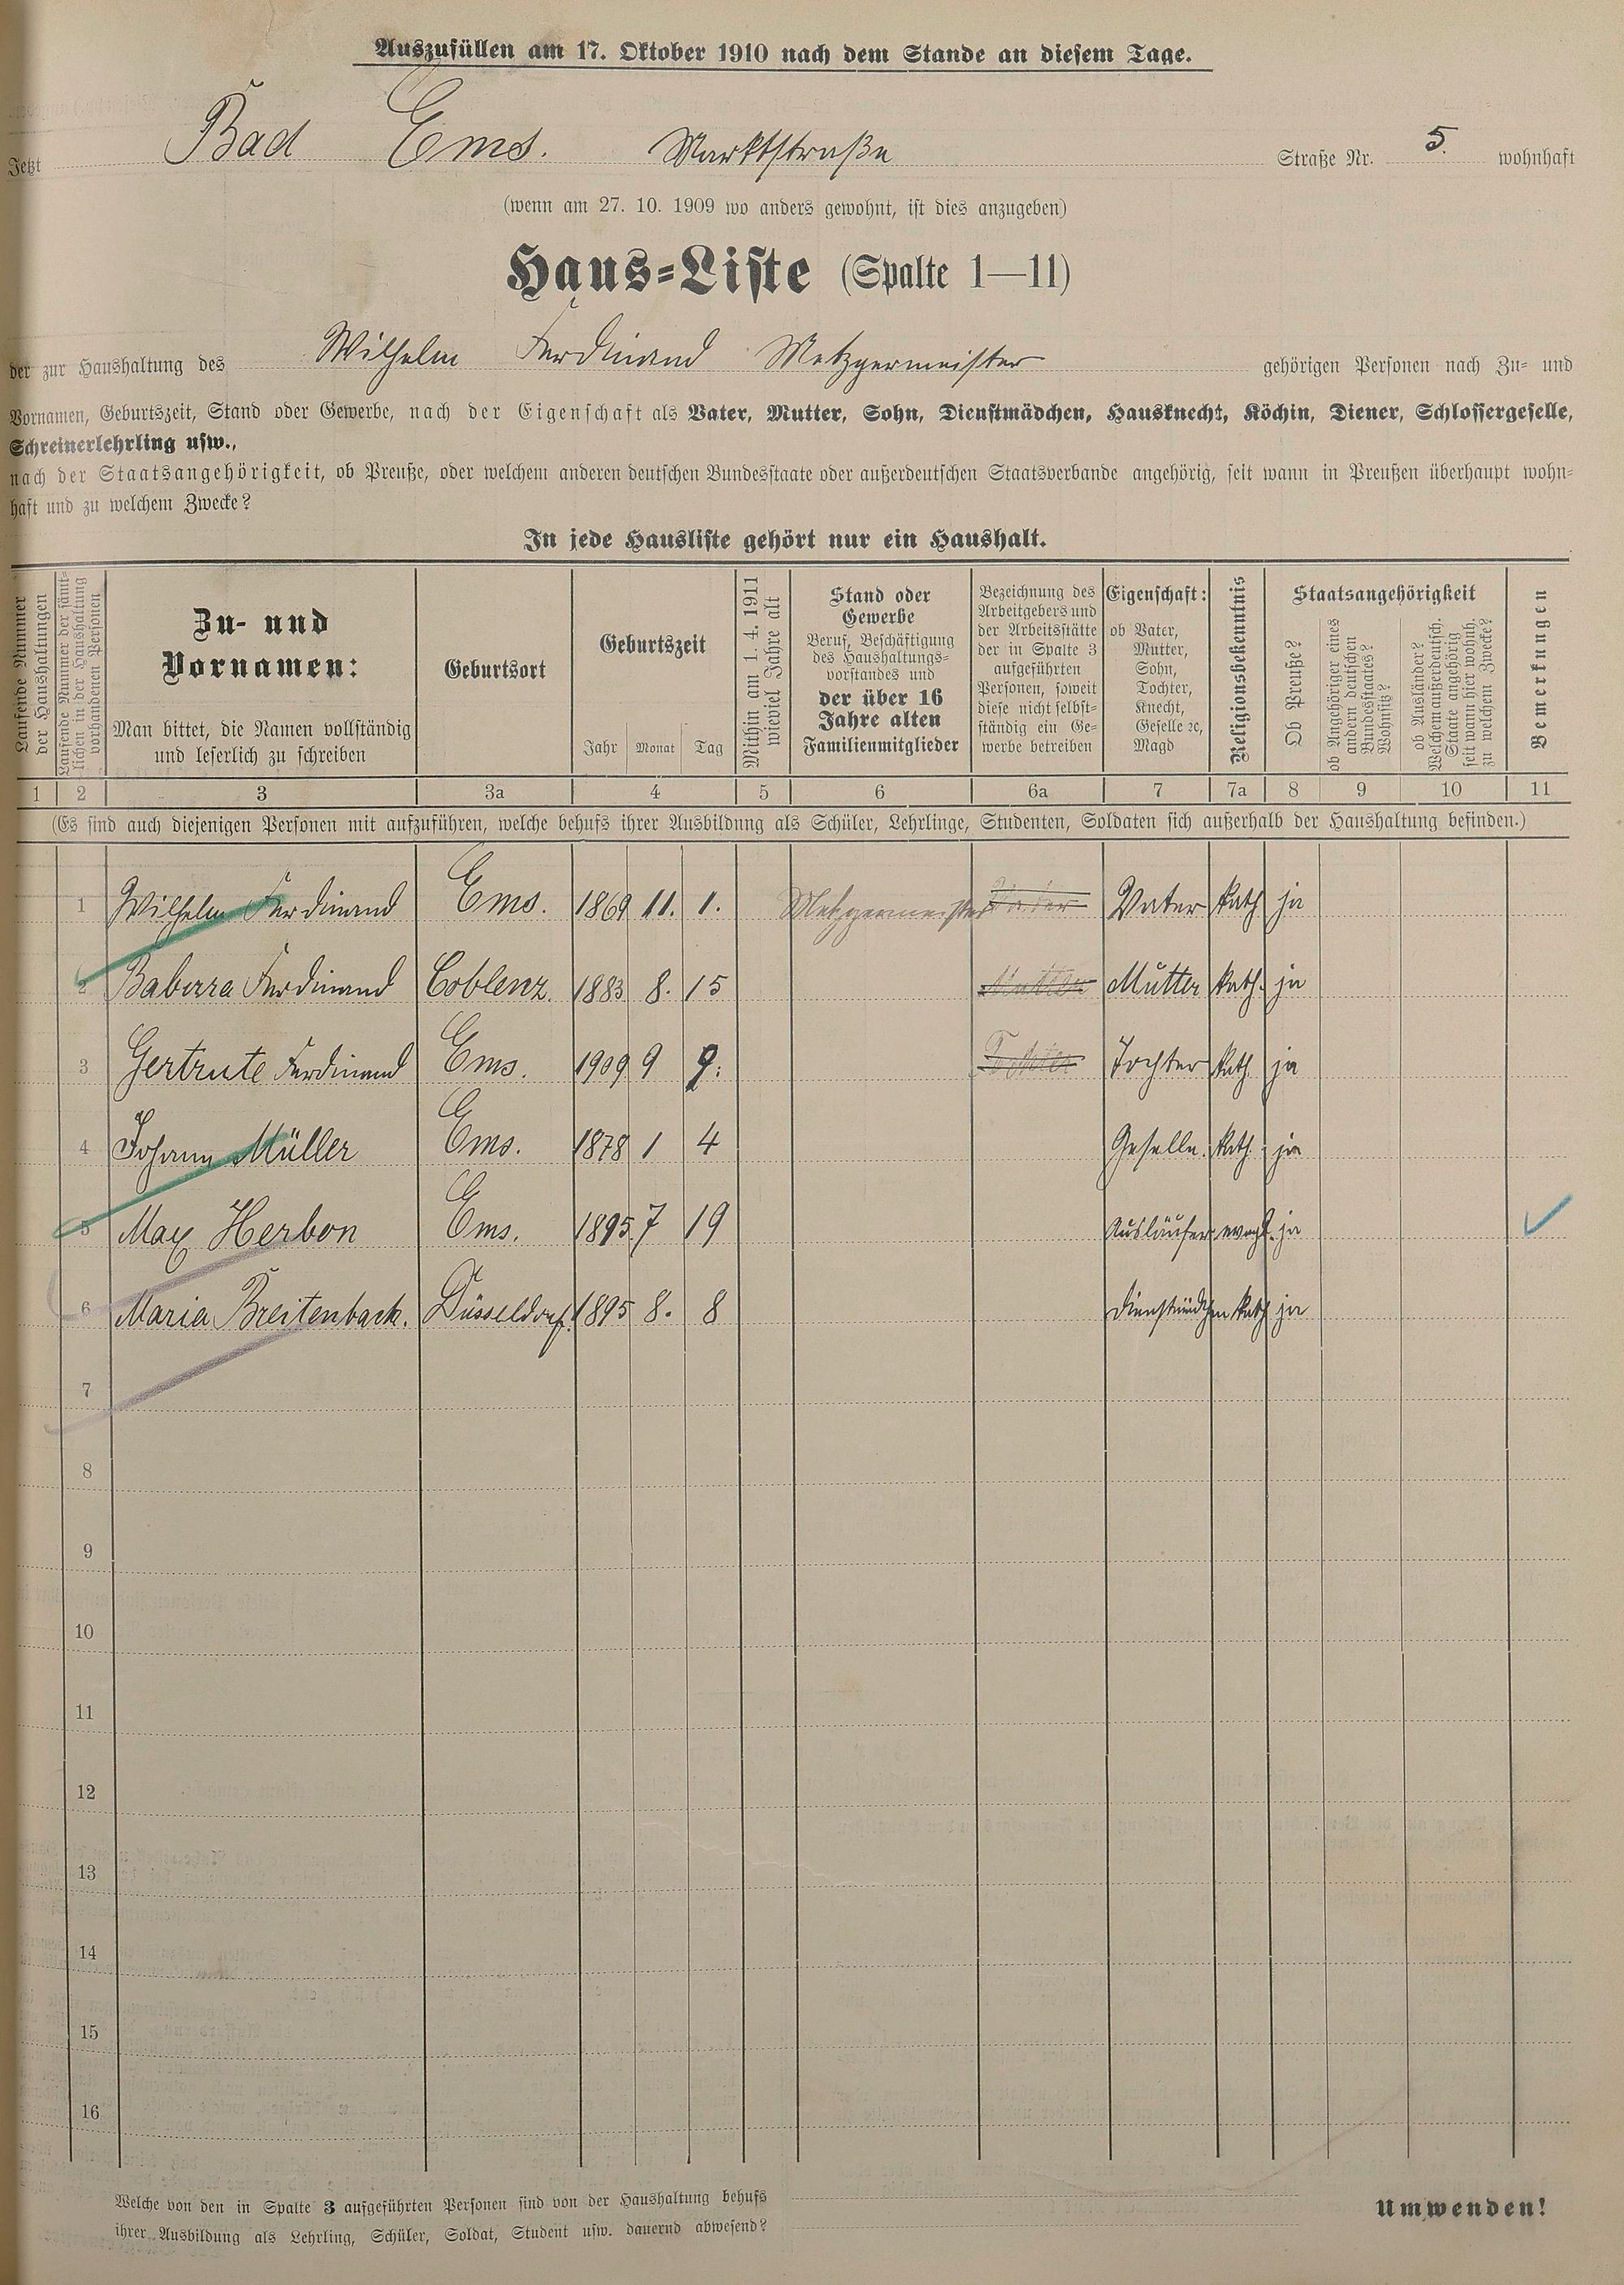 Auszufüllen am 17. Oktober 1910 nach dem Stande an diesem Tage.
Jetzt Bad Ems. Marktstraße Straße Nr. 5. wohnhaft
(wenn am 27. 10. 1909 wo anders gewohnt, ist dies anzugeben)
Haus-Liste (Spalte 1—11)
der zur Haushaltung des Wilhelm Ferdinand Metzgermeister gehörigen Personen nach Zu- und
Vornamen, Geburtszeit, Stand oder Gewerbe, nach der Eigenschaft als Vater, Mutter, Sohn, Dienstmädchen, Hausknecht, Köchin, Diener, Schlossergeselle,
Schreinerlehrling usw.,
nach der Staatsangehörigkeit, ob Preuße, oder welchem anderen deutschen Bundesstaate oder außerdeutschen Staatsverbande angehörig, seit wann in Preußen überhaupt wohn-
haft und zu welchem Zwecke?
In jede Hausliste gehört nur ein Haushalt.
Laufende Nummer
der Haushaltungen
Laufende Nummer der sämt-
lichen in der Haushaltung
vorhandenen Personen
Zu- und
Vornamen:
Man bittet, die Namen vollständig
und leserlich zu schreiben
Geburtsort
Geburtszeit
Jahr Monat Tag
Mithin am 1. 4. 1911
wieviel Jahre alt
Stand oder
Gewerbe
Beruf, Beschäftigung
des Haushaltungs-
vorstandes und
der über 16
Jahre alten
Familienmitglieder
Bezeichnung des
Arbeitgebers und
der Arbeitsstätte
der in Spalte 3
aufgeführten
Personen, soweit
diese nicht selbst-
ständig ein Ge-
werbe betreiben
Eigenschaft:
ob Vater,
Mutter,
Sohn,
Tochter,
Knecht,
Geselle ꝛc,
Magd
Religionsbekenntnis
Staatsangehörigkeit
Ob Preuße?
ob Angehöriger eines
andern deutschen
Bundesstaates?
Wohnsitz?
ob Ausländer?
Welchem außerdeutsch.
Staate angehörig
seit wann hier wohnh.
zu welchem Zwecke?
Bemerkungen
1 2 3 3a 4 5 6 6a 7 7a 8 9 10 11
(Es sind auch diejenigen Personen mit aufzuführen, welche behufs ihrer Ausbildung als Schüler, Lehrlinge, Studenten, Soldaten sich außerhalb der Haushaltung befinden.)
1 Wilhelm Ferdinand Ems. 1869 11. 1. Metzgermeister Vater Vater kath ja
2 Baberra Ferdinand Coblenz. 1883 8. 15 Mutter Mutter kath. ja
3 Gertrute Ferdinand Ems. 1909 9 9. Tochter Tochter kath. ja
4 Johann Müller Ems. 1878 1 4 Geselle. kath. ja
5 Max Herbon Ems. 1895 7 19 Ausläufer evgl. ja
6 Maria Breitenbach. Düsseldorf. 1895 8. 8 Dienstmädchen kath ja
7
8
9
10
11
12
13
14
15
16
Welche von den in Spalte 3 aufgeführten Personen sind von der Haushaltung behufs
ihrer Ausbildung als Lehrling, Schüler, Soldat, Student usw. dauernd abwesend?
Umwenden!